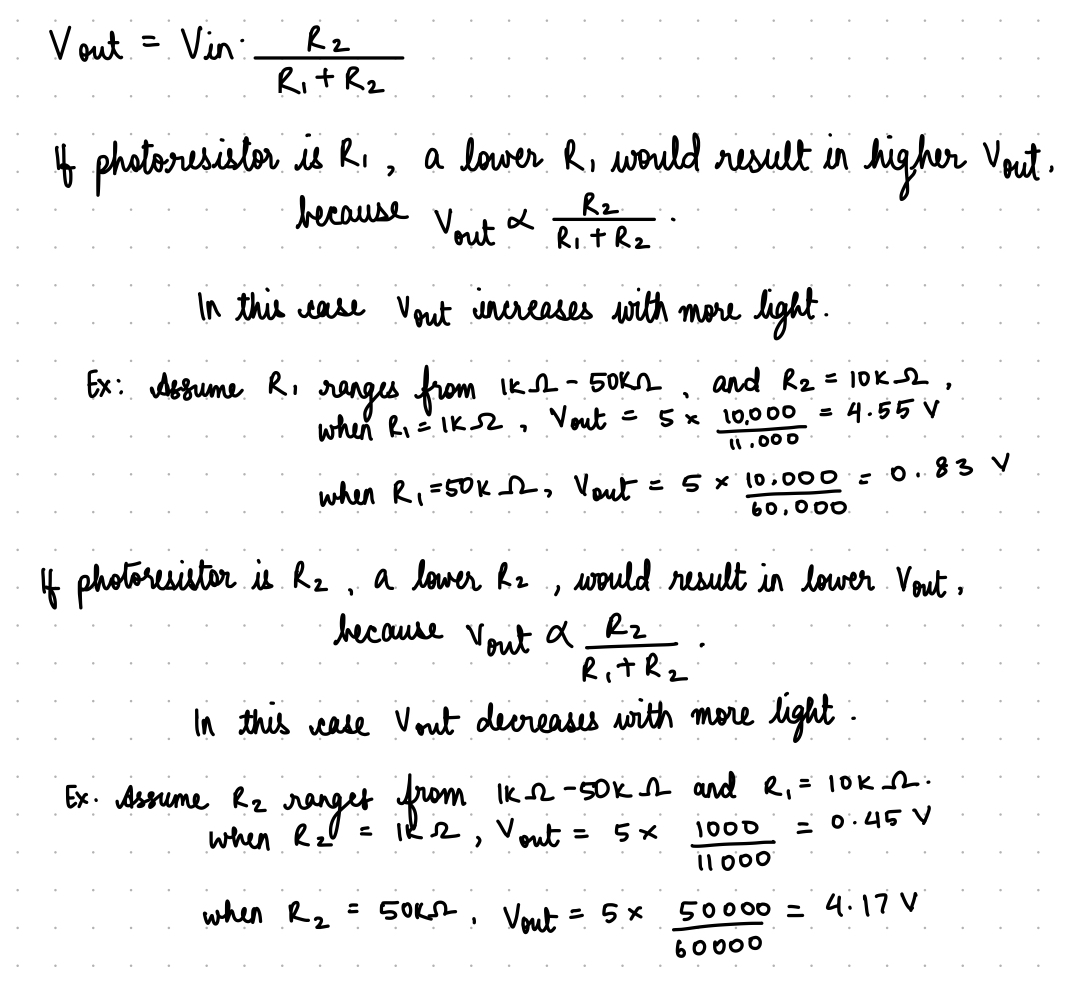 Vout = Vin · R₂ / (R₁ + R₂)
If photoresistor is R₁, a lower R₁ would result in higher Vout.
because Vout ∝ R₂ / (R₁ + R₂) .
In this case Vout increases with more light.
Ex: Assume R₁ ranges from 1KΩ - 50KΩ, and R₂ = 10KΩ,
when R₁ = 1KΩ, Vout = 5 × 10,000 / 11,000 = 4.55 V
when R₁ = 50KΩ, Vout = 5 × 10,000 / 60,000 = 0.83 V
If photoresistor is R₂, a lower R₂, would result in lower Vout,
because Vout ∝ R₂ / (R₁ + R₂) .
In this case Vout decreases with more light.
Ex. Assume R₂ ranges from 1KΩ - 50KΩ and R₁ = 10KΩ.
when R₂ = 1KΩ, Vout = 5 × 1000 / 11000 = 0.45 V
when R₂ = 50KΩ, Vout = 5 × 50000 / 60000 = 4.17 V